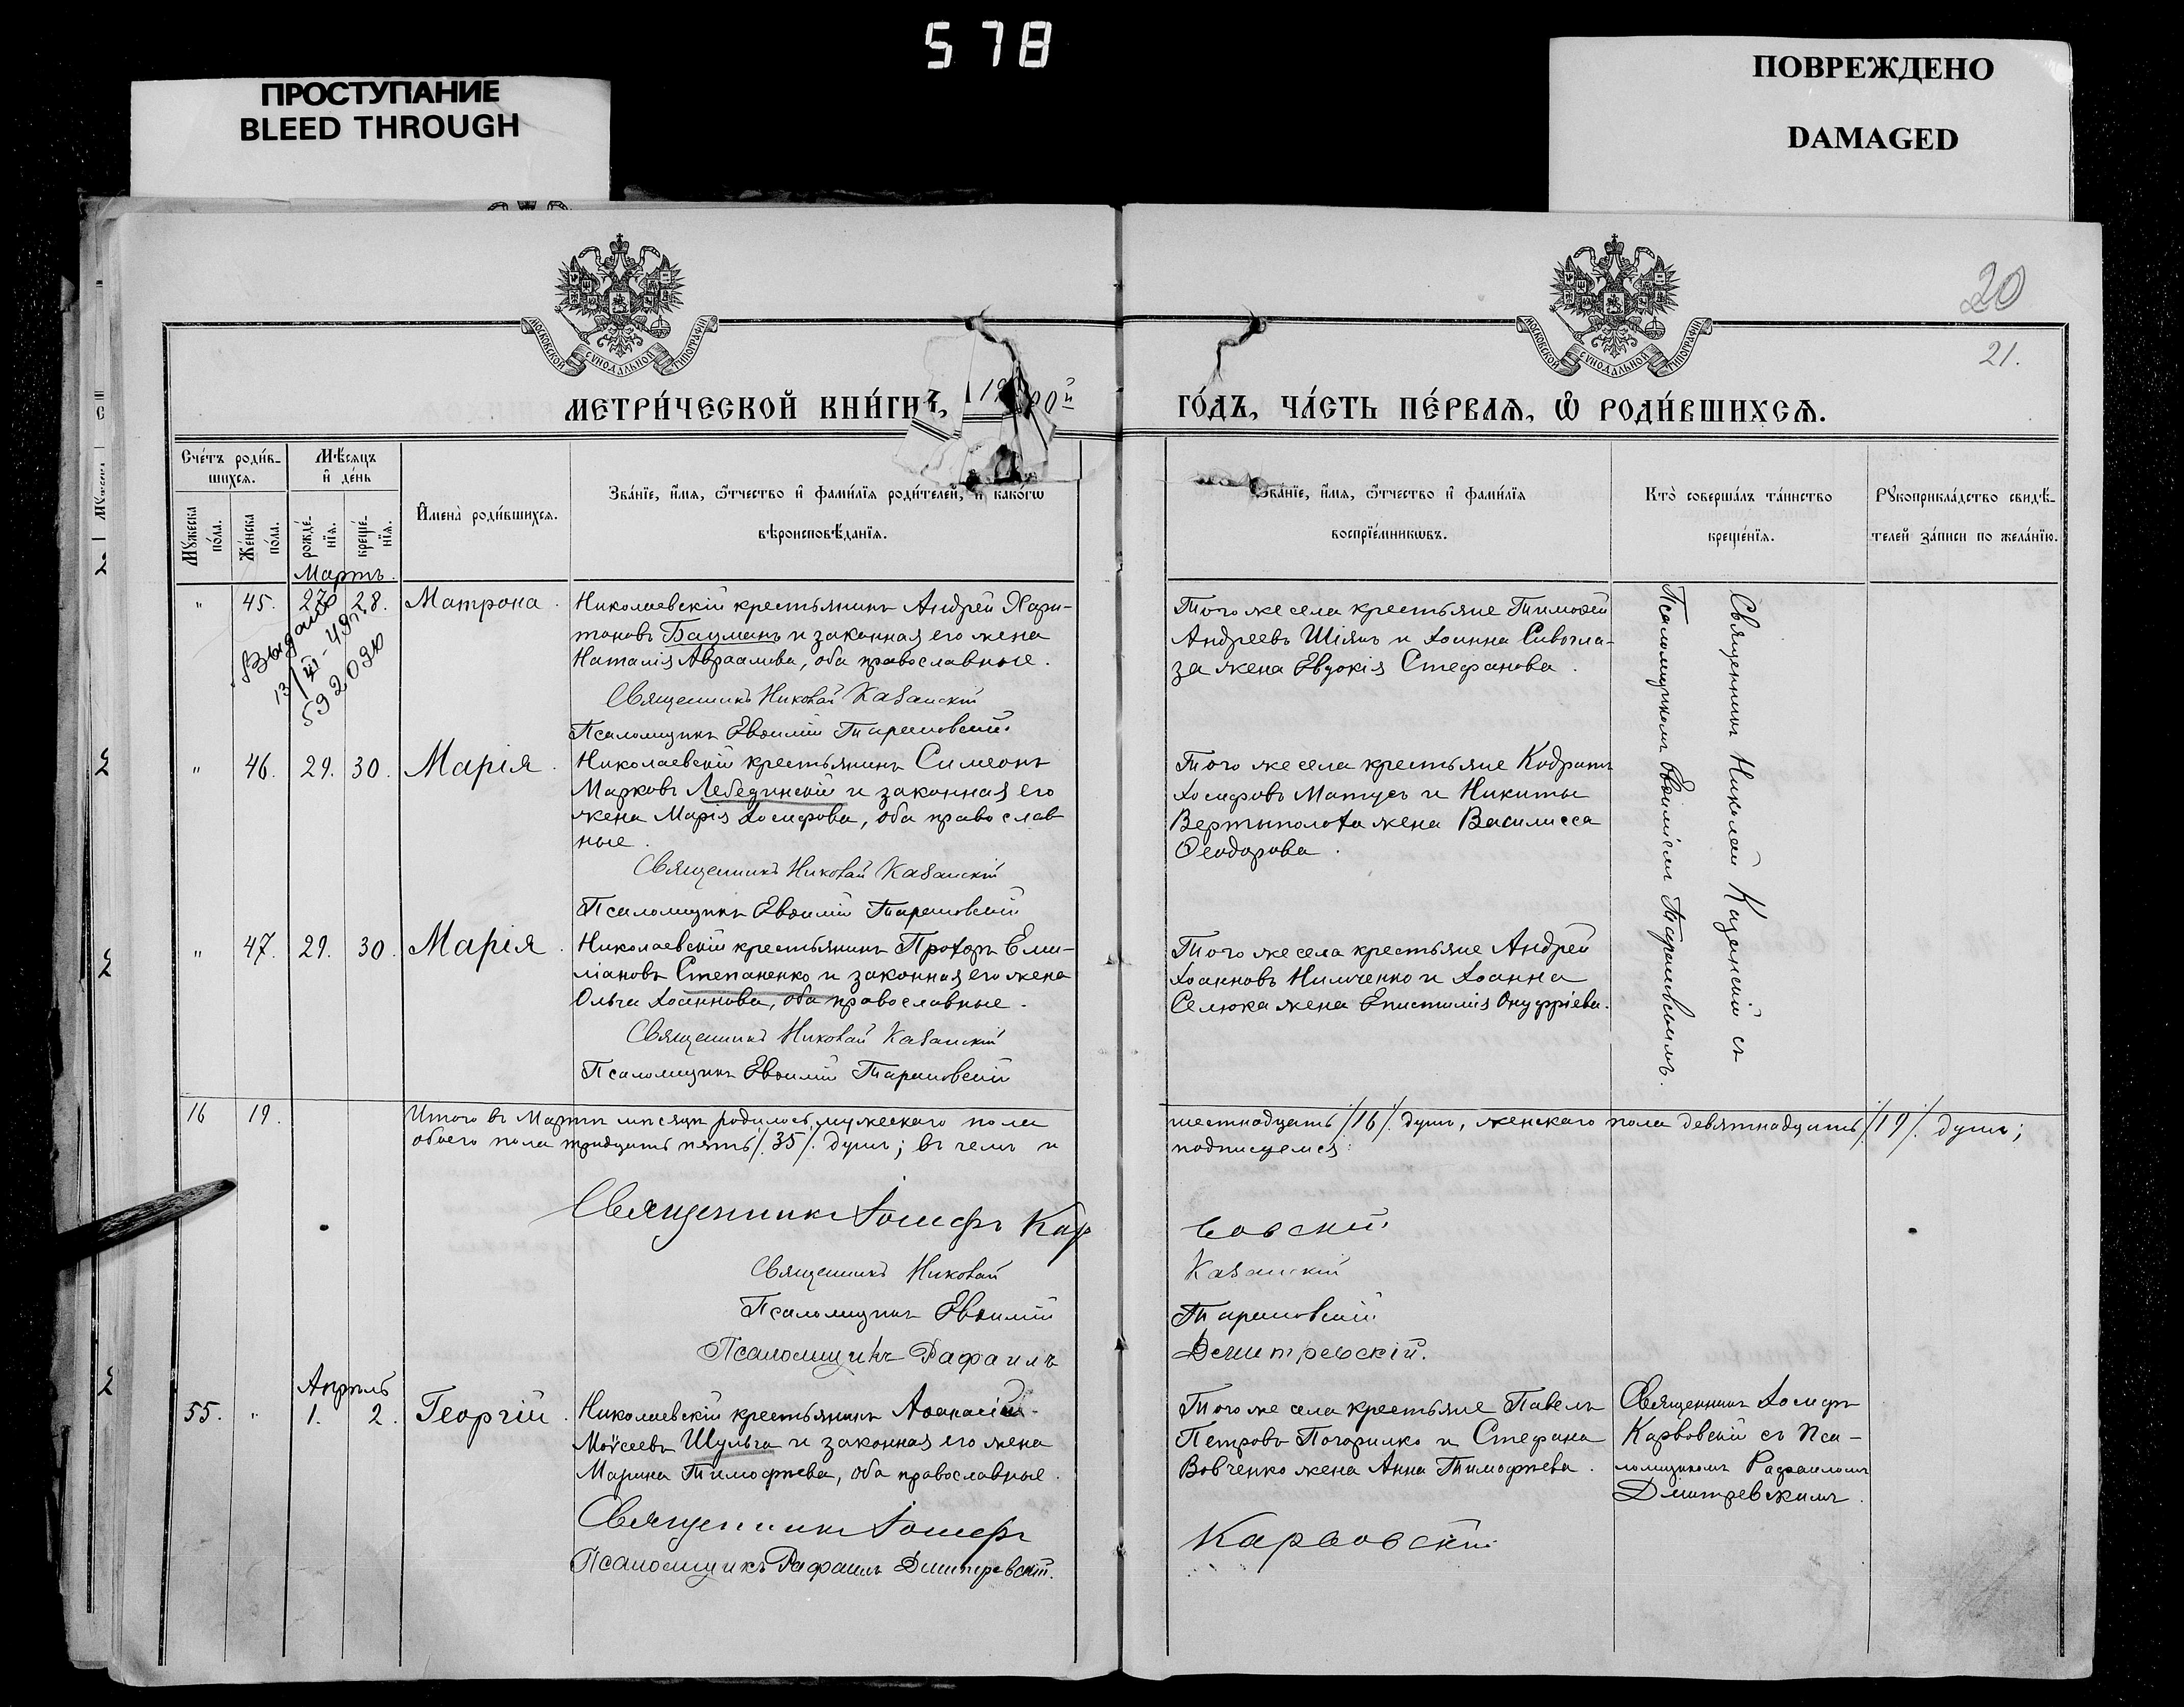 578
ПРОСТУПАНИЕ
BLEED THROUGH
ПОВРЕЖДЕНО
DAMAGED
МОСКОВСКОЙ СѴНОДАЛЬНОЙ ТИПОГРАФІИ
МОСКОВСКОЙ СѴНОДАЛЬНОЙ ТИПОГРАФІИ
20
21.
МЕТРИ́ЧЕСКОЙ КНИ́ГИ,
ГО́ДЪ, ЧА́СТЬ ПЕ́РВАѦ, Ѡ҆ РОДИ́ВШИХСѦ.
Сче́тъ роди́в-
шихсѧ.
Мѣ́сѧцъ
и҆ де́нь
Мꙋ́жеска по́ла.
Же́нска по́ла.
рожде́-
нїѧ.
креще́-
нїѧ.
И҆мена̀ роди́вшихсѧ.
Зва́нїе, и҆́мѧ, ѻ҆́тчество и҆ фами́лїѧ роди́телей, и҆ како́гѡ
вѣроисповѣ́данїѧ.
Зва́нїе, и҆́мѧ, ѻ҆́тчество и҆ фами́лїѧ
воспрїе́мникѡвъ.
Кто̀ соверша́лъ та́инство
креще́нїѧ.
Рꙋкоприкла́дство свидѣ́-
телей за́писи по жела́нїю.
Мартъ.
" 45. 27. 28. Матрона. Николаевскій крестьянинъ Андрей Хари-
тоновъ Бауманъ и законная его жена
Наталія Авраамова, оба православные.
Священникъ Николай Казанскій
Псаломщикъ Евѳимій Тарановскій.
Того же села крестьяне Тимоѳей
Андреевъ Шіянъ и Іоанна Сивогла-
за жена Евдокія Стефанова.
Священникъ Николай Казанскій съ
Псаломщикомъ Евѳиміемъ Тарановскимъ.
" 46. 29. 30. Марія. Николаевскій крестьянинъ Симеонъ
Марковъ Лебединскій и законная его
жена Марія Іосифова, оба православ
ные.
Священникъ Николай Казанскій
Псаломщикъ Евѳимій Тарановскій
Того же села крестьяне Кодратъ
Іосифовъ Матусъ и Никиты
Вертыполоха жена Василисса
Ѳеодорова.
" 47. 29. 30. Марія. Николаевскій крестьянинъ Прохоръ Еми-
ліановъ Степаненко и законная его жена
Ольга Іоаннова, оба православные.
Священникъ Николай Казанскій
Псаломщикъ Евѳимій Тарановскій
Того же села крестьяне Андрей
Іоанновъ Нильченко и Іоанна
Селюка жена Епистимія Онуфріева.
16 19. Итого въ Мартѣ мѣсяцѣ родилось мужескаго пола шестнадцать /16/. душъ, женскаго пола девятнадцать /.19/. душъ;
обоего пола тридцать пять /.35/. душъ; въ чемъ и подписуемся:
Священникъ Іосифъ Карвовскій.
Священникъ Николай Казанскій
Псаломщикъ Евѳимій Тарановскій.
Псаломщикъ Рафаилъ Дмитревскій.
Апрѣль
55. " 1. 2. Георгій. Николаевскій крестьянинъ Аѳанасій
Моѵсеевъ Шульга и законная его жена
Марина Тимофѣева, оба православные.
Священникъ Іосифъ Карвовскій.
Псаломщикъ Рафаилъ Дмитревскій.
Того же села крестьяне Павелъ
Петровъ Погорилко и Стефана
Вовченко жена Анна Тимофѣева.
Священникъ Іосифъ
Карвовскій съ Пса-
ломщикомъ Рафаиломъ
Дмитревскимъ.